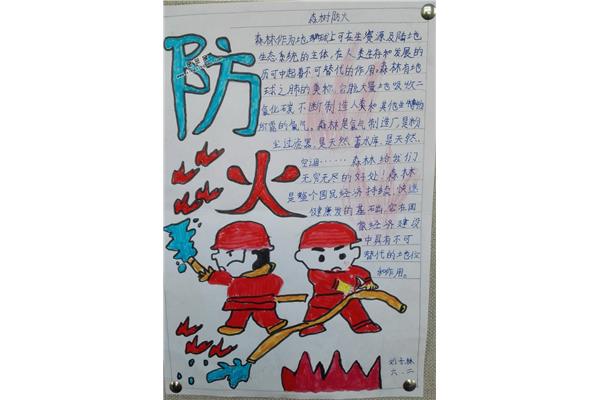 森林防火
防
火
森林作为地球上可再生资源及陆地
生态系统的主体,在人类生存和发展的
历史中起着不可替代的作用。森林有地
球之肺的美称,它能大量地吸收二
氧化碳不断制造人类和其他生物
所需的氧气。森林是氧气制造厂,是粉
尘过滤器,是天然蓄水库,是天然
空调……森林给我们
无穷无尽的好处!森林
是整个国民经济持续、快速
健康发的基础,它在国
家经济建设
中具有不可
替代的地位
和作用。
六.二